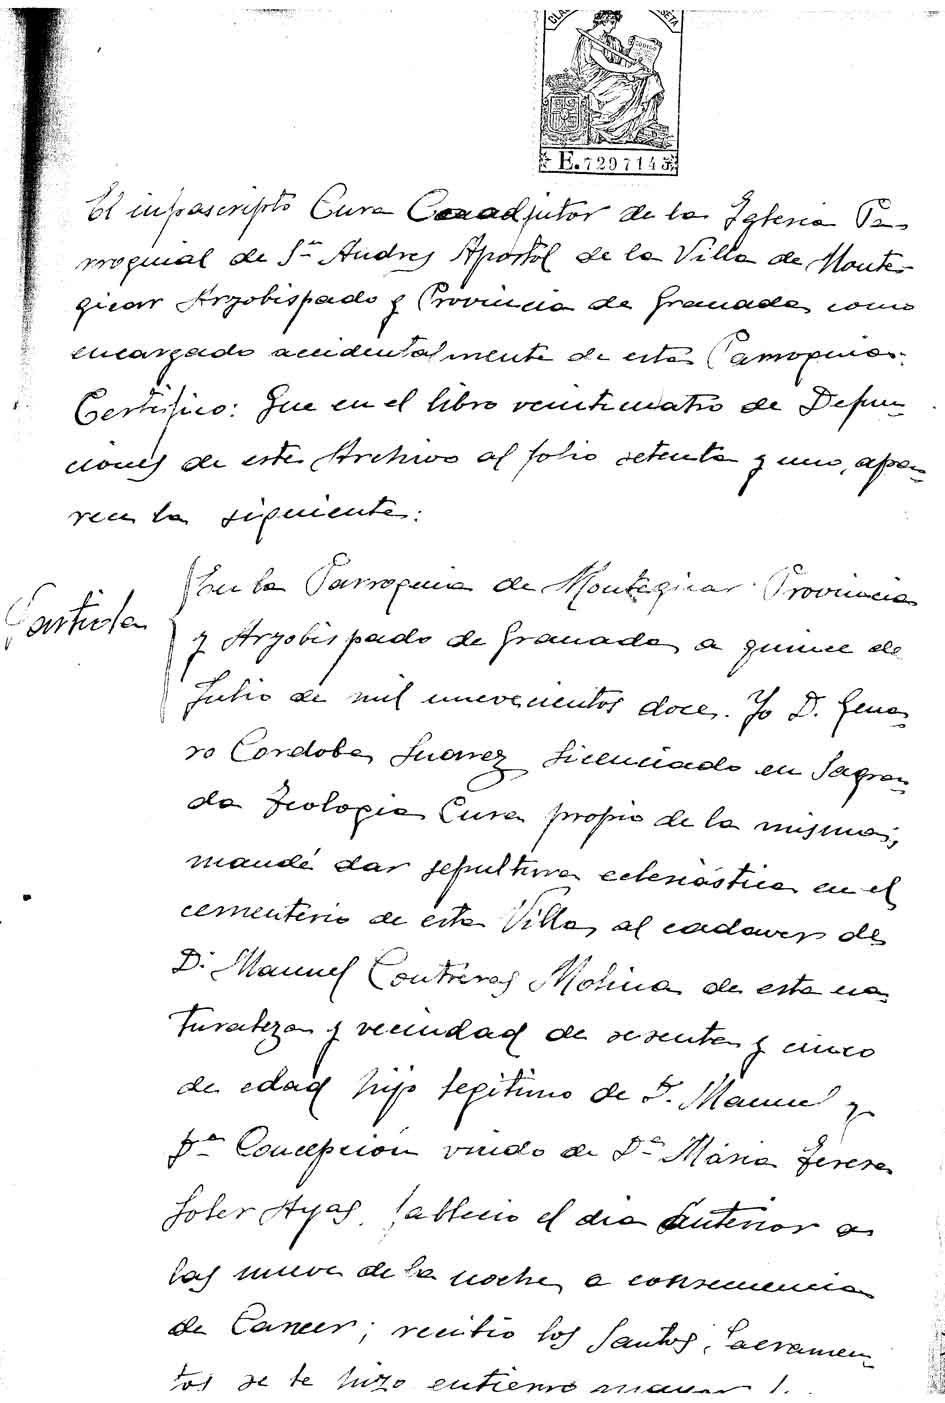 CODIGO
E.7297143
El infrascripto Cura Coadjutor de la Iglesia Pa-
rroquial de Sn Andres Apostol de la Villa de Monte-
gicar Arzobispado y Provincia de Granada como
encargado accidentalmente de esta Parroquia.
Certifico: Que en el libro veinticuatro de Defun-
ciones de este Archivo al folio setenta y uno, apa-
rece la siguiente:
Partida
En la Parroquia de Montegicar Provincia
y Arzobispado de Granada a quince de
Julio de mil nuevecientos doce. Yo D. Gena-
ro Cordoba Suarez Licenciado en Sagra-
da Teologia Cura propio de la misma,
mandé dar sepultura eclesiástica en el
cementerio de esta Villa, al cadaver de
D. Manuel Contreras Molina de esta na-
turaleza y vecindad de sesenta y cinco
de edad hijo legitimo de D. Manuel y
Dª Concepción viudo de Dª Maria Teresa
Soler Ayas. fallecio el dia anterior a
las nueve de la noche, a consecuencia
de Cancer; recibio los Santos Sacramen-
tos se le hizo entierro